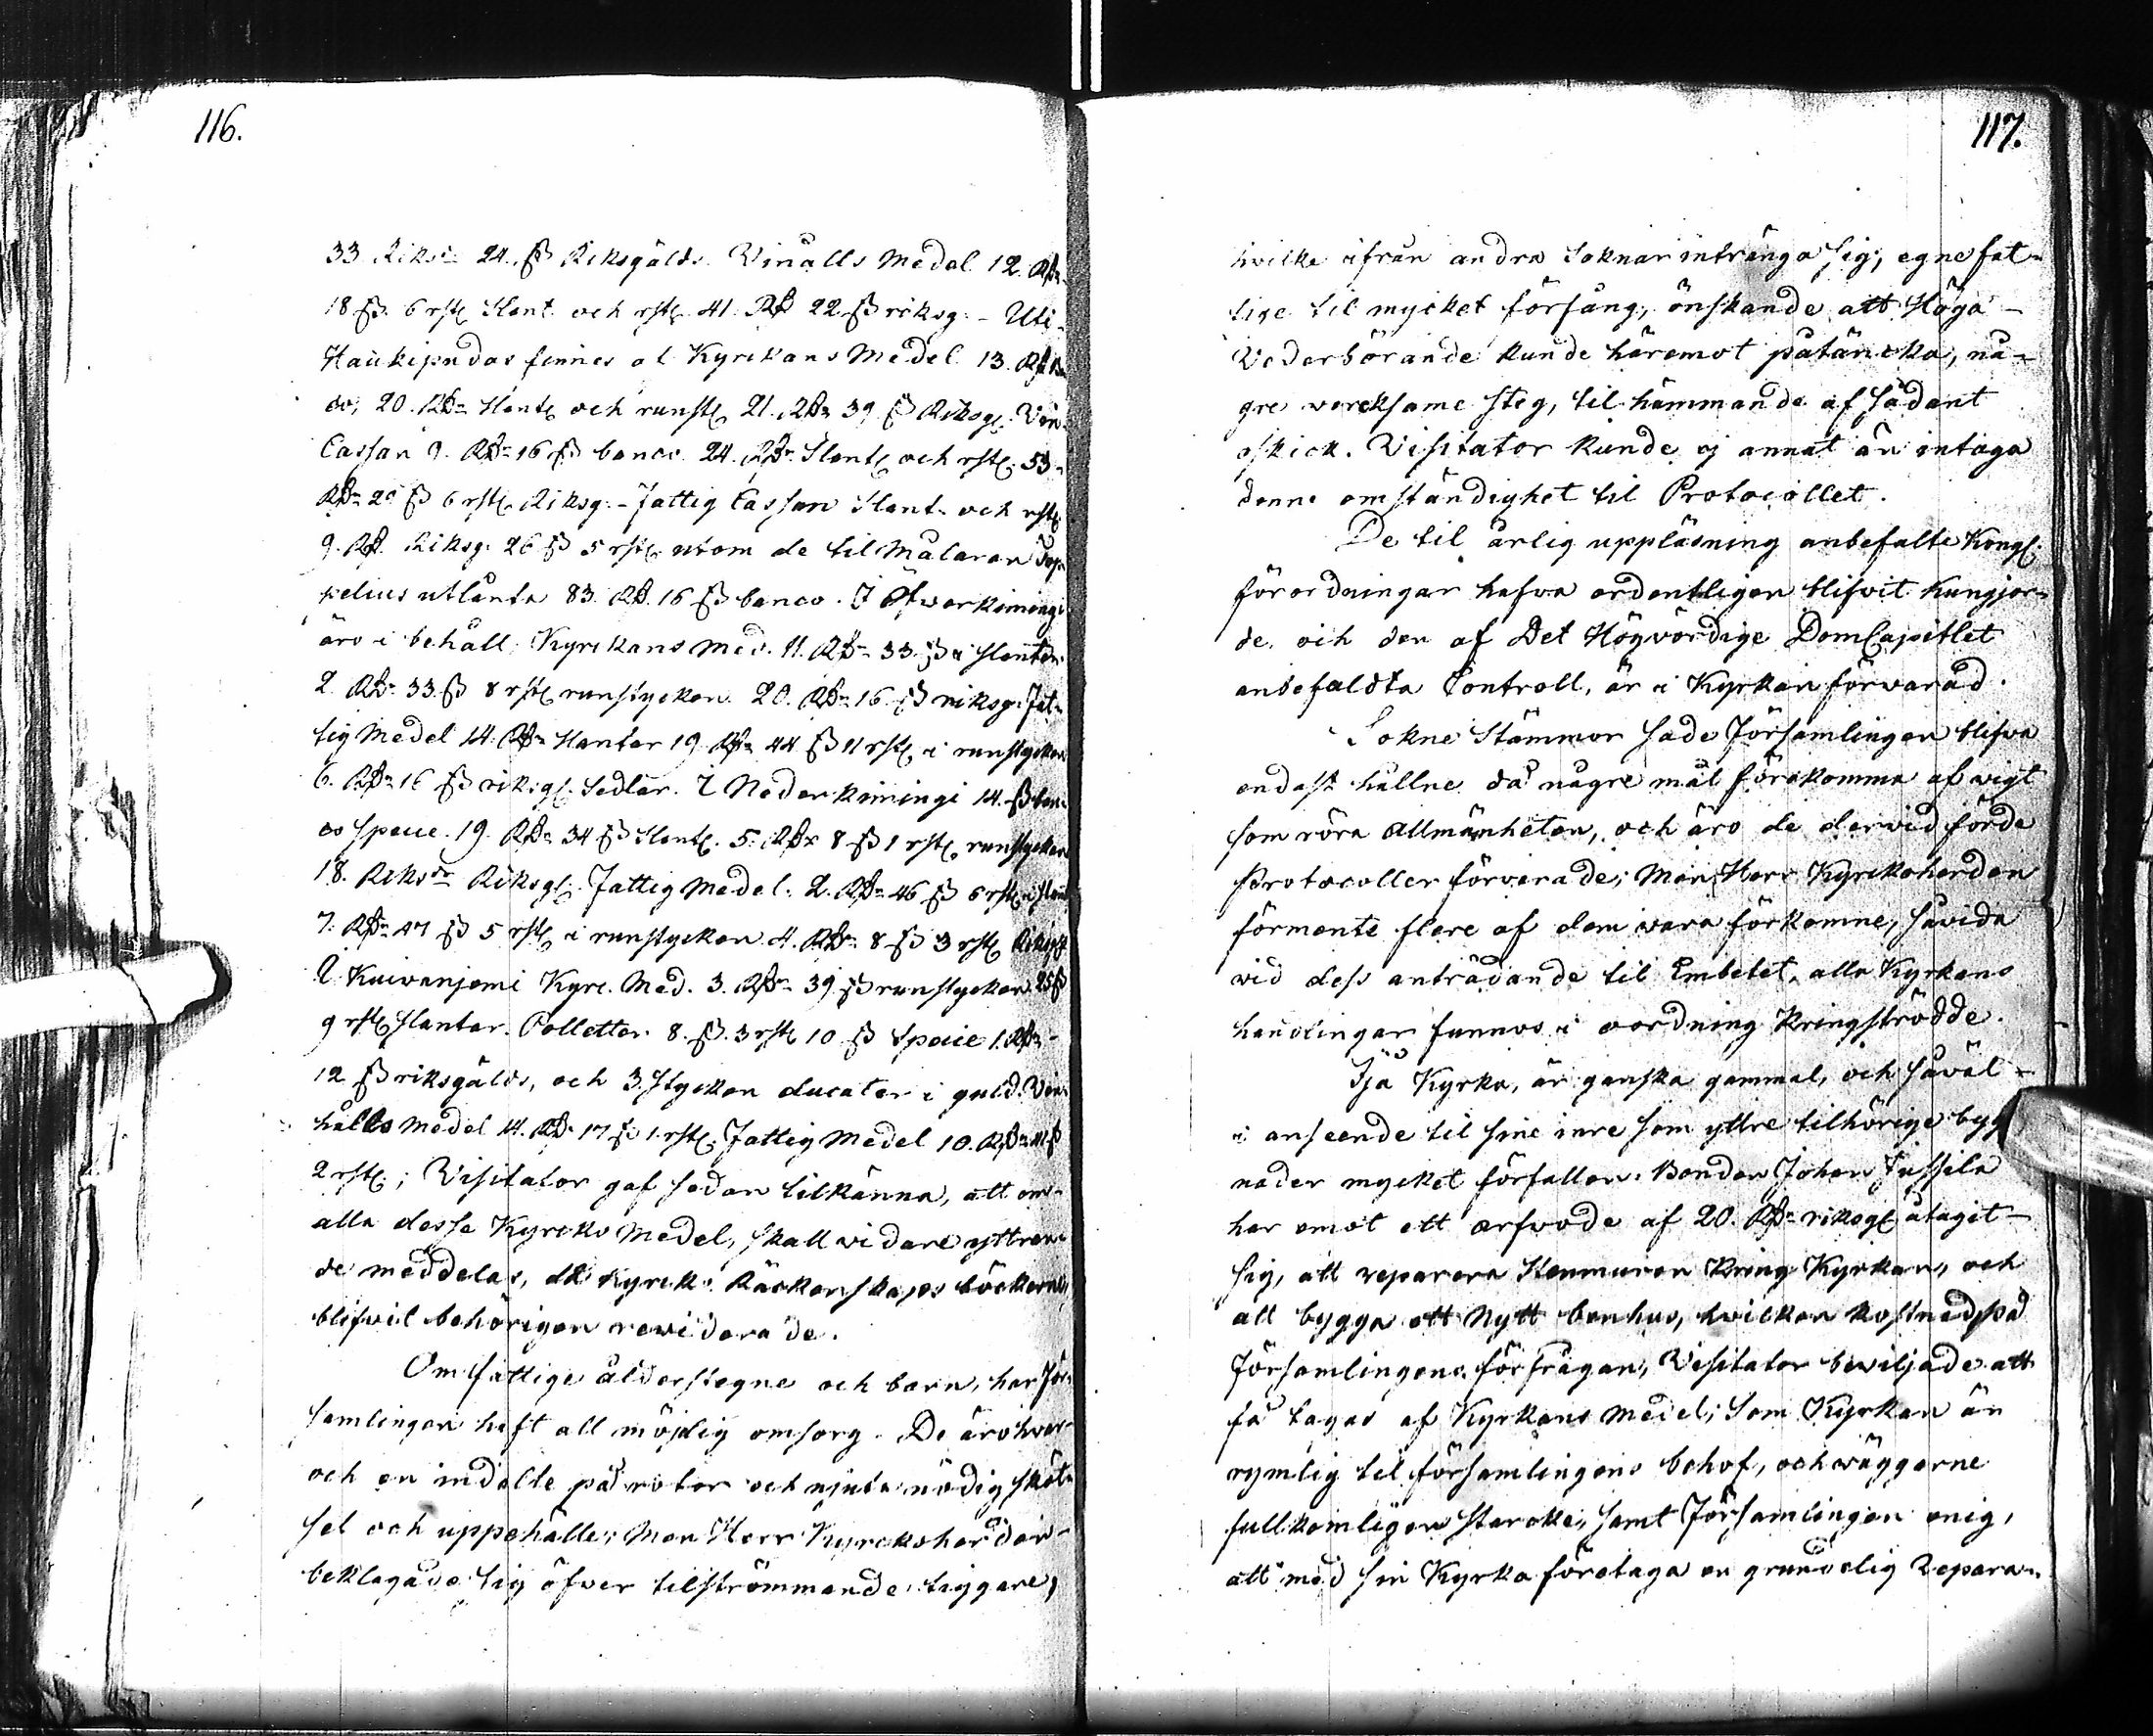 116.
33 Riksdr 24. ß Riksgälds. Vinålls Medel 12. Rdr
18 ß. 6 rst. Slant. och rst. 41. Rd 22 ß riksg. - Uti
Haukipudas finnes al Kyrckans Medel 13. Rd Ban
co, 20. Rdr Slant. och runst. 21. Rdr 39 ß Riksg. Vin
Cassan 9. Rdr 16 ß banco. 24. Rdr. Slant. och rst. 53
Rdr 20 ß 6 rst. Riksg. - Fattig Cassan Slant. och rst.
9. Rd. Riksg. 26 ß 5 rst. utom de til Målaren Top-
pelius utlånta 83. Rd. 16 ß banco. I Öfwerkimingi
äro i behåll, Kyrckans Med. 11. Rdr 33. ß i slantar
2. Rdr 33. ß 8 rst. runstycken. 20. Rdr 16. ß riksg. Fat-
tig Medel 14. Rdr Slantar 19 Rdr 44 ß 11 rst. i runstycken
6. Rdr 16 ß riksg. Sedlar. I Nederkimingi 14. ß ban-
co Specie. 19. Rdr 34 ß Slant. 5. Rdr 8 ß 1 rst. runstycken
18. Riksdr Riksg. Fattig Medel. 2. Rdr 46 ß 6 rst. i slant
7. Rdr 47 ß 5 rst. i runstycken 4. Rdr 8 ß 3 rst. Riksg.
I Kuivanjemi Kyrc. Med. 3. Rdr 39 ß runstycken 25 ß
9 rst. slantar. Polletter 8. ß. 3 rst. 10 ß Specie 1. Rdr
12 ß riksgälds, och 3. stycken ducater i guld. Vin-
hålls Medel 14. Rdr 17 ß 1. rst. Fattig Medel 10. Rdr 41 ß
2 rst.; Visitator gaf sedan tilkänna, att om
alla desse Kyrcko Medel, skall vidare yttran-
de meddelas, då Kyrck. Räckenskaps böckerne
blifvit behörigen reviderade.
Om fattige ålderstegne och barn, har För-
samlingen haft all möjelig omsorg. De äro hvar
och en indelte på rotor och njuta nödig sköt-
sel och uppehälle; Men Herr Kyrckoherden
beklagade sig öfver tilströmmande tiggare,
117.
hvilke ifrån andra Soknar intränga sig, egne fat-
tige til mycket förfång, önskande att Höga
Vederbörande kunde häremot påtäncka, nå-
gre vercksame steg, til hämmande af sådant
oskick. Visitator kunde ej annat än intaga
denne omständighet til Protocollet.
De til årlig uppläsning anbefalte Kongl.
förordningar hafva ordentligen blifvit kungjor-
de, och den af Det Högvördige DomCapitlet
anbefaldta Controll, är i Kyrkan förvarad.
Sokne Stämmor sade Församlingen blifva
endast hållne då någre mål förekomma af vigt
som röra Allmänheten, och äro de dervid förde
Protocoller förvarade; Men Herr Kyrckoherden
förmente flere af dem vara förkomne, såvida
vid dess anträdande til Embetet, alla Kyrkans
handlingar funnos i oordning kringströdde.
Ijå Kyrka, är ganska gammal, och såväl
i anseende til sine inre som yttre tilhörige byg
nader mycket förfallen. Bonden Johan Jussila
har emot ett arfvode af 20. Rdr riksgl åtagit
sig, att reparera Stenmuren kring Kyrkan, och
att bygga ett Nytt benhus, hvilken kostnad på
Församlingens förfrågan, Visitator beviljade att
få tagas af Kyrkans medel; Som Kyrkan är
rymlig til församlingens behof, och väggarne
fullkomligen starcke, samt Församlingen enig,
att med sin Kyrka företaga en grundelig Repara-